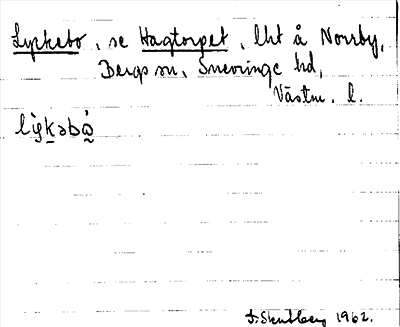 Lyckebo, se Hagtorpet, lht å Norrby,
Bergs sn, Snevringe hd,
Västm. l.
lỳkəbò̰
S. Skullberg 1962.